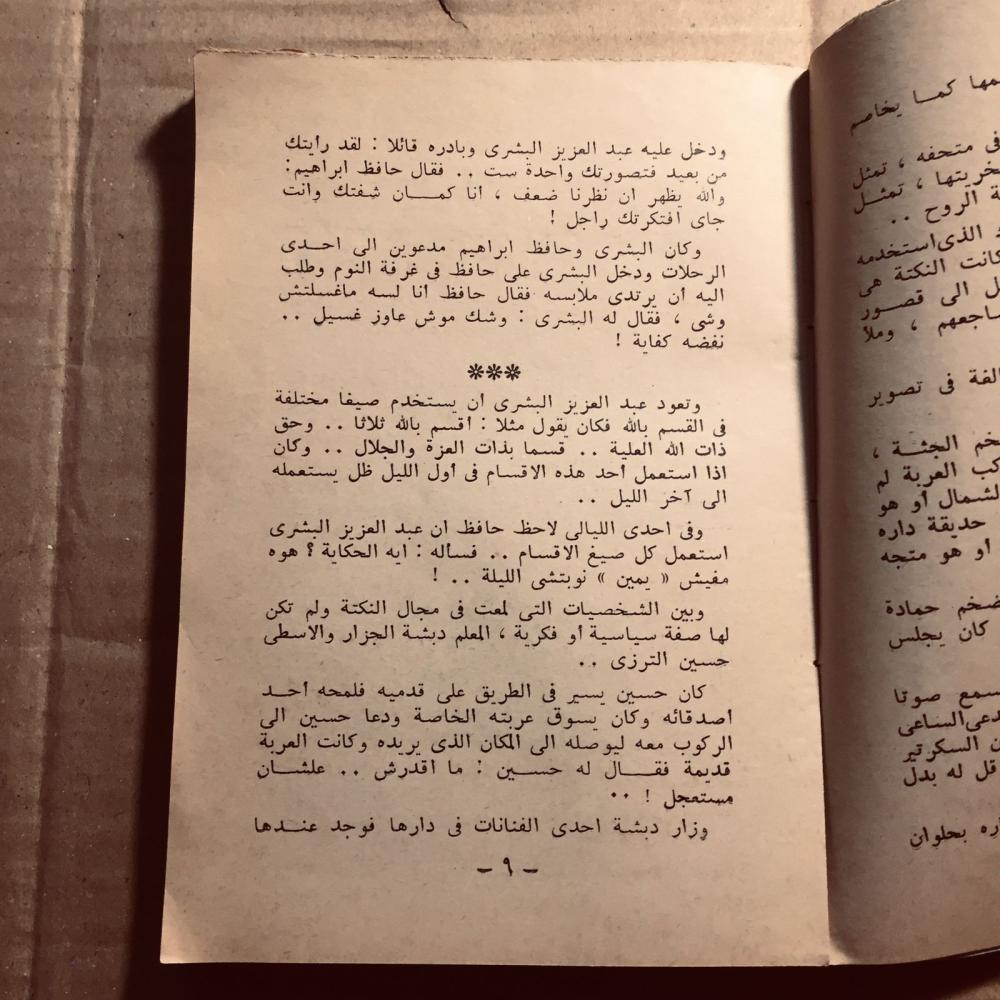 ودخل عليه عبد العزيز البشرى وبادره قائلا : لقد رأيتك
من بعيد فتصورتك واحدة ست .. فقال حافظ ابراهيم:
والله يظهر ان نظرنا ضعف ، أنا كمـــان شفتك وانت
جاى افتكرتك راجل !
وكان البشرى وحافظ ابراهيم مدعوين الى احــدى
الرحلات ودخل البشرى على حافظ فى غرفة النوم وطلب
اليه أن يرتدى ملابسه فقال حافظ أنا لسه ماغسلتش
وشى ، فقال له البشرى : وشك موش عاوز غسيل ..
نفضه كفاية !
***
وتعود عبد العزيز البشرى أن يستخدم صيفا مختلفة
فى القسم بالله فكان يقول مثلا : أقسم بالله ثلاثا .. وحق
ذات الله العلية .. قسما بذات العزة والجلال .. وكان
اذا استعمل أحد هذه الاقسام فى أول الليل ظل يستعمله
الى آخر الليل ..
وفى احدى الليالى لاحظ حافظ ان عبد العزيز البشرى
استعمل كل صيغ الاقسام .. فسأله : ايه الحكاية ؟ هوه
مفيش « يمين » نوبتشى الليلة .. !
وبين الشخصيات التى لمعت فى مجال النكتة ولم تكن
لها صفة سياسية أو فكرية ، المعلم دبشة الجزار والاسطى
حسين الترزى ..
كان حسين يسير فى الطريق على قدميه فلمحه أحــد
أصدقائه وكان يسوق عربته الخاصة ودعا حسين الى
الركوب معه ليوصله الى المكان الذى يريده وكانت العربة
قديمة فقـــال له حسين : ما اقدرش .. علشــان
مستعجل ! ..
وزار دبشة احدى الفنانات فى دارها فوجد عنــدها
- ٩ -
كما يخاصم
فى متحفه ، تمثل
، تمثــل
الروح ..
الذى استخدمه
كانت النكتة هى
الى قصور
، وملأ
فى تصوير
الجثــة ،
العربة لم
أو هو
حديقة داره
او هو متجه
حمادة
كان يجلس
صوتا
الساعى
السكرتير
قل له بدل
بحلوان